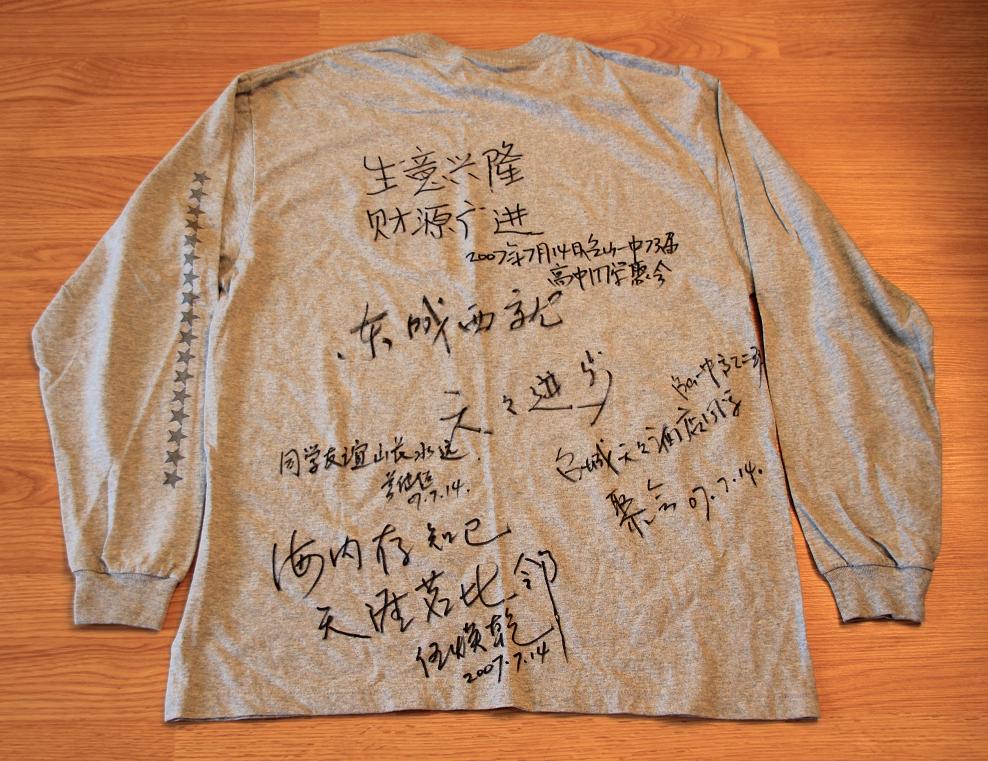 生意兴隆
财源广进
2007年7月14日台山一中73届
高中同学聚会
东成西就
天天进步
台山一中高乙二班
同学友谊山长水远
07.7.14.
台城天之酒店同学
聚会07.7.14.
海内存知己
天涯若比邻
伍焕乾
2007.7.14